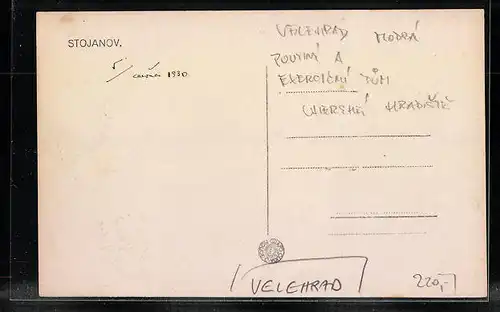 STOJANOV.
5/ červen 1930
VELEHRAD MODRÁ
POUTNÍ A
EXERCIČNÍ DŮM
UHERSKÉ HRADIŠTĚ
VELEHRAD
220,-